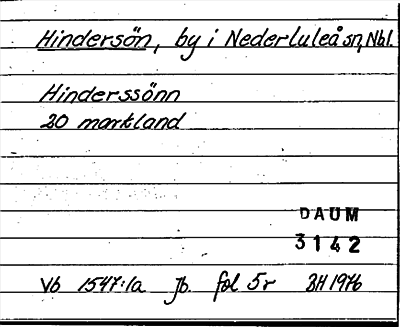 Hindersön, by i Nederluleå sn, Nbl.
Hinderssönn
20 markland
DAUM
3142
Vb 1547:1a Jb. fol 5r BH 1976